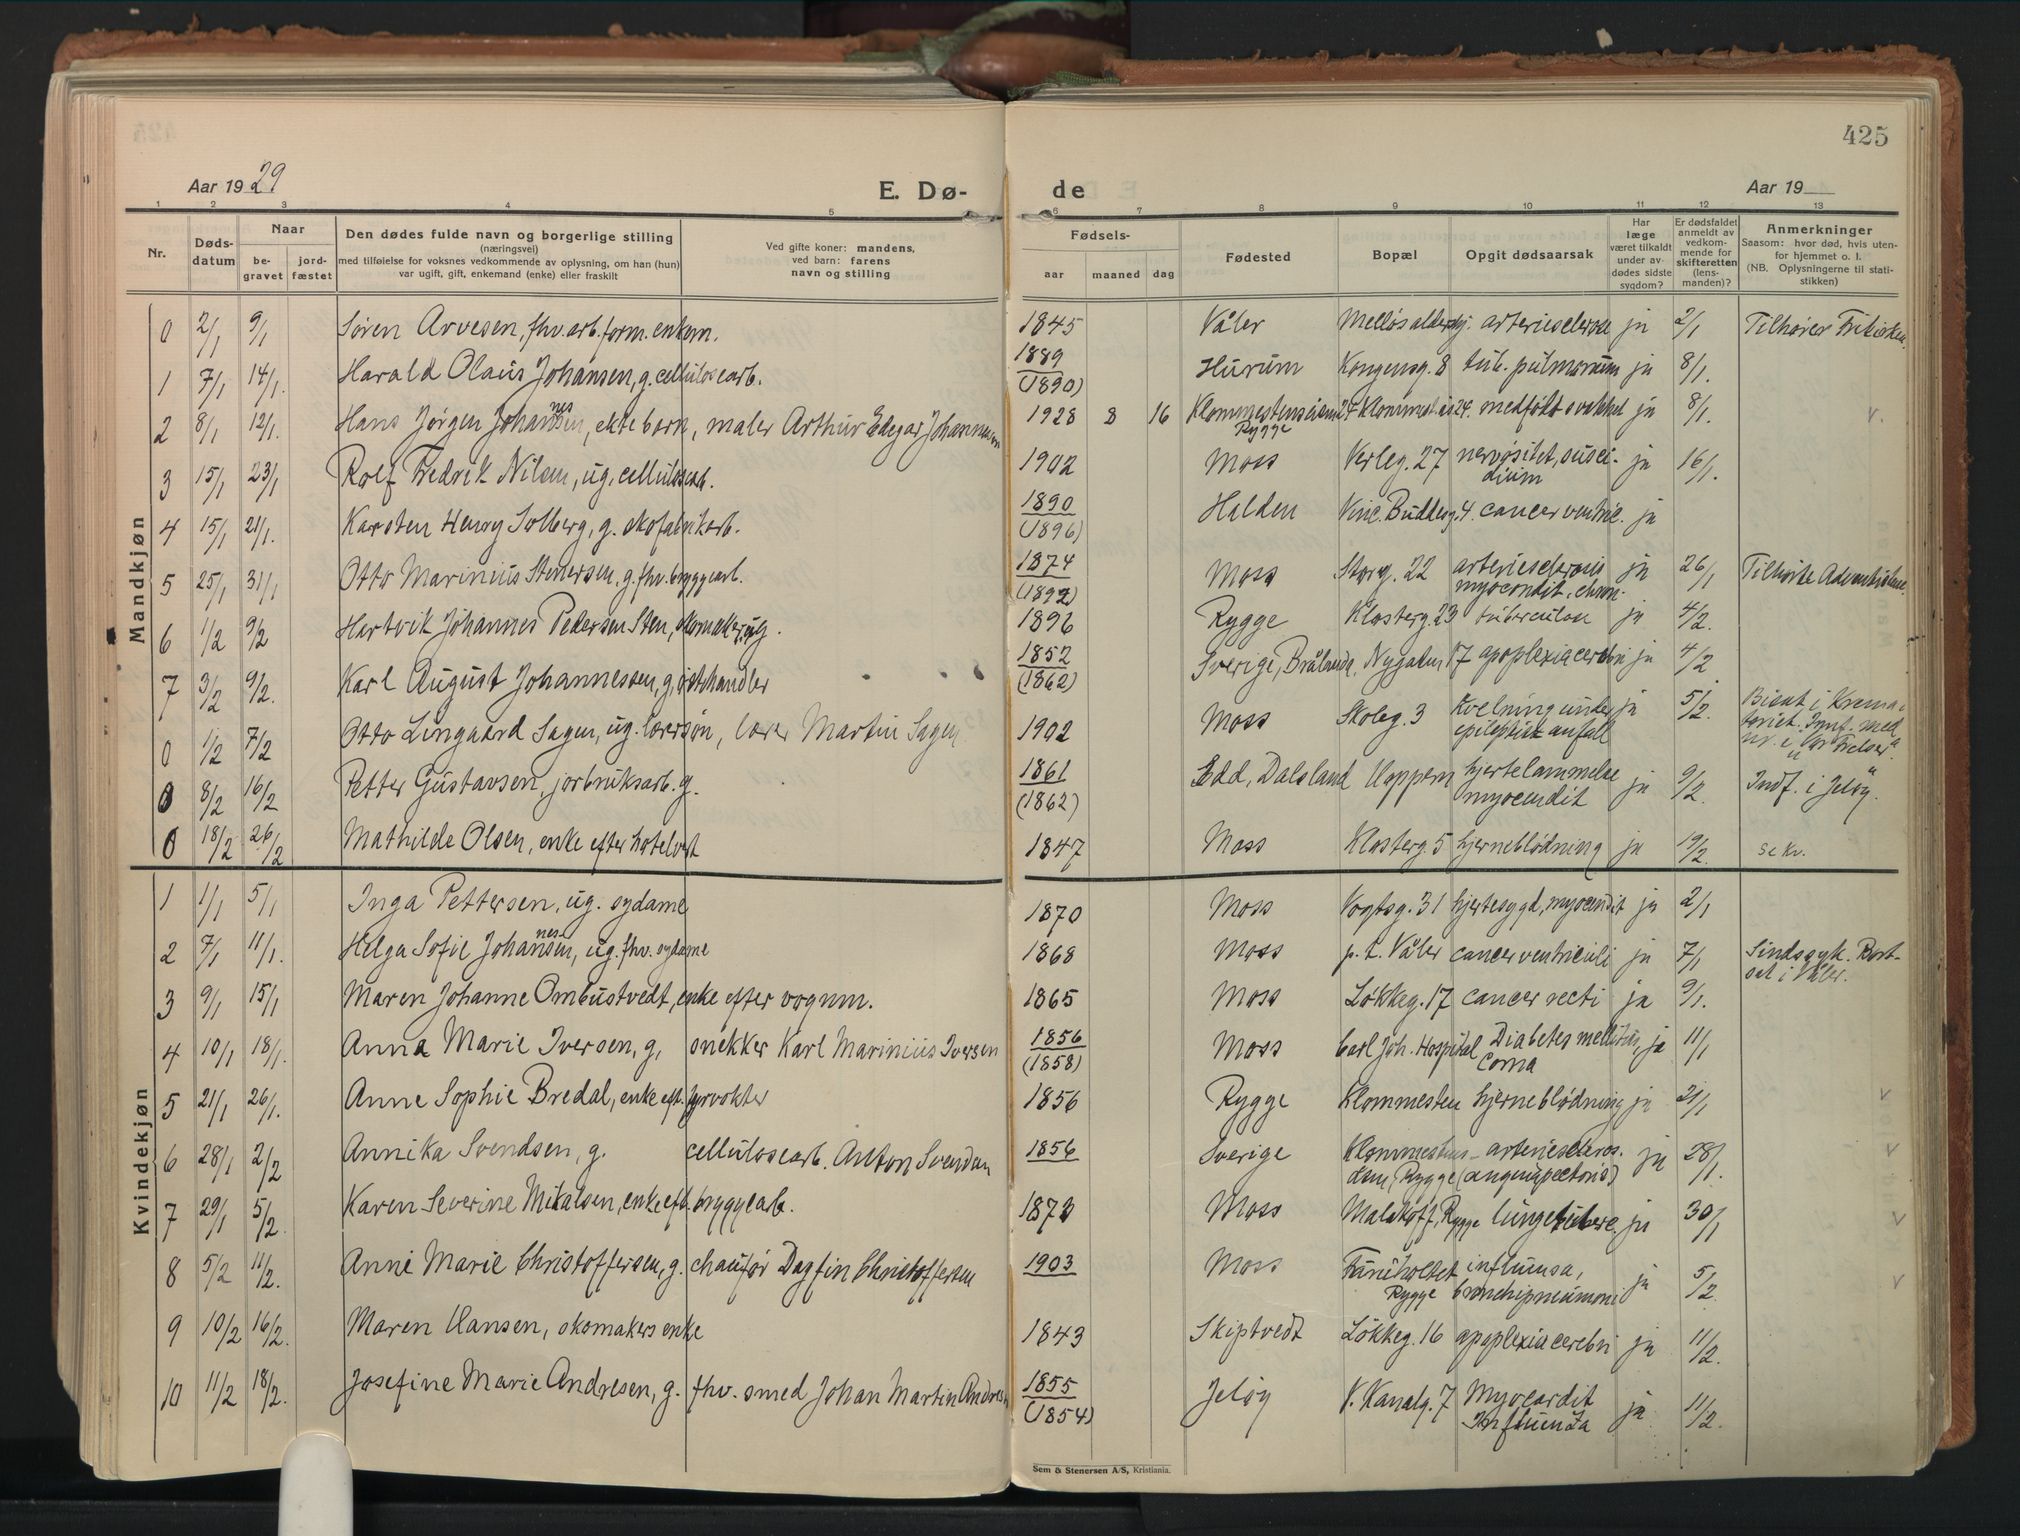 425
Aar 1929
E. Dø- de
Aar 19
1 2 3 4 5 6 7 8 9 10 11 12 13
Nr.
Døds-
datum
Naar
be-
gravet
jord-
fæstet
Den dødes fulde navn og borgerlige stilling
(næringsvei)
med tilføielse for voksnes vedkommende av oplysning, om han (hun)
var ugift, gift, enkemand (enke) eller fraskilt
Ved gifte koner: mandens,
ved barn: farens
navn og stilling
Fødsels-
aar maaned dag
Fødested
Bopæl
Opgit dødsaarsak
Har
læge
været tilkaldt
under av-
dødes sidste
sygdom?
Er dødsfaldet
anmeldt av
vedkom-
mende for
skifteretten
(lens-
manden)?
Anmerkninger
Saasom: hvor død, hvis uten-
for hjemmet o. l.
(NB. Oplysningerne til stati-
stikken)
Mandkjøn
0 2/1 9/1 Søren Arvesen, fhv. arb. form. enkem. 1845 Våler Melløs aldershj. arteriesclerose ja 2/1 Tilhører Frikirken
1 7/1 14/1. Harald Olaus Johansen, g. cellulosearb. 1889 (1890) Hurum Kongensg. 8 tub. pulmonum ja 8/1.
2 8/1 12/1. Hans Jørgen Johannesen, ekte barn, maler Arthur Edgar Johannesen 1928 8 16 Klommestensåsen 24 Rygge Klommest.ås 24. medfödt svakhet ja 8/1. v.
3 15/1 23/1 Rolf Fredrik Nilsen, ug. cellulosearb. 1902 Moss Verleg. 27 nervøsitet, susci-
dium ja 16/1.
4 15/1 21/1. Karsten Henry Solberg, g. skofabrikarb. 1890 (1896) Halden Vinc. Buddesg. 4. cancer ventric. ja
5 25/1 31/1 Otto Marinius Stenersen, g. fhv. bryggearb. 1874 (1892) Moss Storg. 22 arteriesclerosis
myocardit. chron. ja 26/1 Tilhørte Adventistene.
6 1/2 9/2 Hartvik Johannes Pedersen Sten, skomaker, ug. 1896 Rygge Klosterg. 23 tuberculose ja 4/2.
7 3/2 9/2. Karl August Johannessen, g. 1852 (1862) Sverige, Nygaten 17 apoplexia cerebri ja 4/2
0 1/2 7/2 Otto Lingaard Sagen, ug. lærersøn, lærer Martin Sagen 1902 Moss Skoleg. 3 Kvelning under
epileptisk anfall ja 5/2. Bisat i Krema-
toriet. Innf. med
nr. i Vor Frelser
0 8/2 16/2 Petter Gustavsen, jorbruksarb. g. 1861 (1862) Edd, Dalsland Noppern hjertelammelse
myocardit ja 9/2. Indf. i Jeløy.
0 18/2 26/2 Mathilde Olsen, enke efter hotelvert 1847 Moss Klosterg. 5 hjerneblødning ja 19/2. se kv.
Kvindekjøn
1 1/1 5/1 Inga Pettersen, ug. sydame 1870 Moss Vogtsg. 31 hjertesygd, myocardit ja 2/1
2 7/1 11/1. Helga Sofie Johannesen, ug. fhv. sydame 1868 Moss p. t. Våler cancer ventriculi ja 7/1 Sindssyk. Bort-
sat i Våler.
3 9/1 15/1 Maren Johanne Ombustvedt, enke efter vognm. 1865 Moss Løkkeg. 17 cancer recti ja 9/1.
4 10/1 18/1. Anna Marie Iversen, g, snekker Karl Marinius Iversen 1856 (1858) Moss Carl Joh. Hospital Diabetes mellitus,
Coma ja 11/1
5 21/1 26/1. Anne Sophie Bredal, enke eft. fyrvokter 1856 Rygge Klommesten hjerneblødning ja 21/1 v
6 28/1 2/2 Annika Svendsen, g. cellulosearb. Anton Svendsen 1856 Sverige Klommesten-
dam, Rygge arteriescleros.
(angina pectoris) ja 28/1. v
7 29/1 5/2. Karen Severine Mikalsen, enke eft. bryggearb. 1873 Moss Malakoff, Rygge lungetuberc. ja 30/1 v
8 5/2 11/2. Anne Marie Christoffersen, g. chaufør Dagfin Christoffersen 1903 Moss Furuholtet
Rygge influensa,
bronchipneumoni ja 5/2. v
9 10/2 16/2. Maren Hansen, skomakers enke 1843 Skiptvedt Løkkeg. 16 apoplexia cerebri ja 11/2.
10 11/2 18/2. Josefine Marie Andresen, g. fhv. smed Johan Martin Andresen 1855 (1854) Jeløy V. Kanalg. 7 Myocardit
Influenza ja 11/2.
Sem & Stenersen A/S, Kristiania.